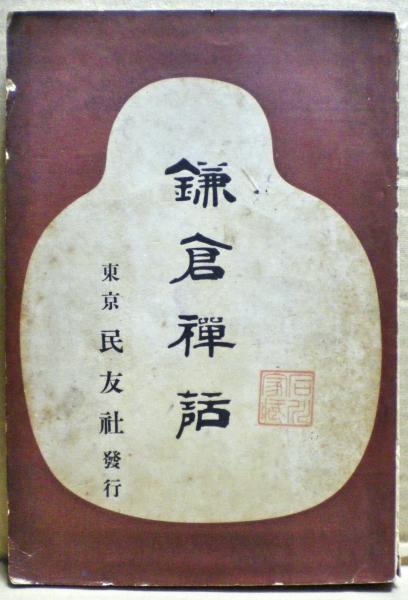 鎌倉禪話
東京 民友社 發行